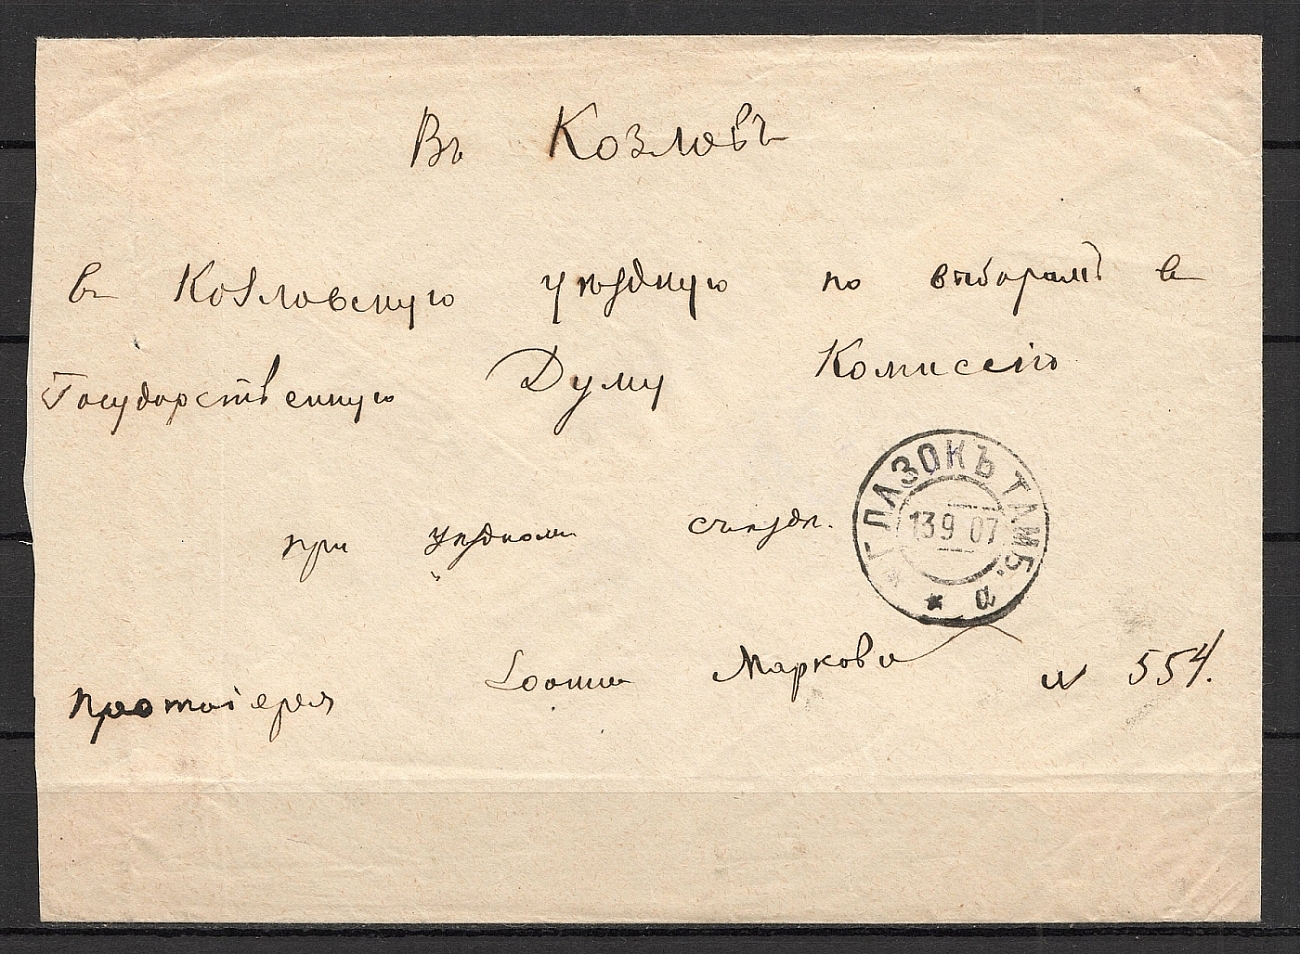 Въ Козловъ
въ Козловскую уѣздную по выборамъ въ
Государственную Думу Комиссію
при уѣздномъ съѣздѣ.
ГЛАЗОКЪ ТАМБ.
13 9 07
а
протоіерея Іоанна Маркова
№ 554.